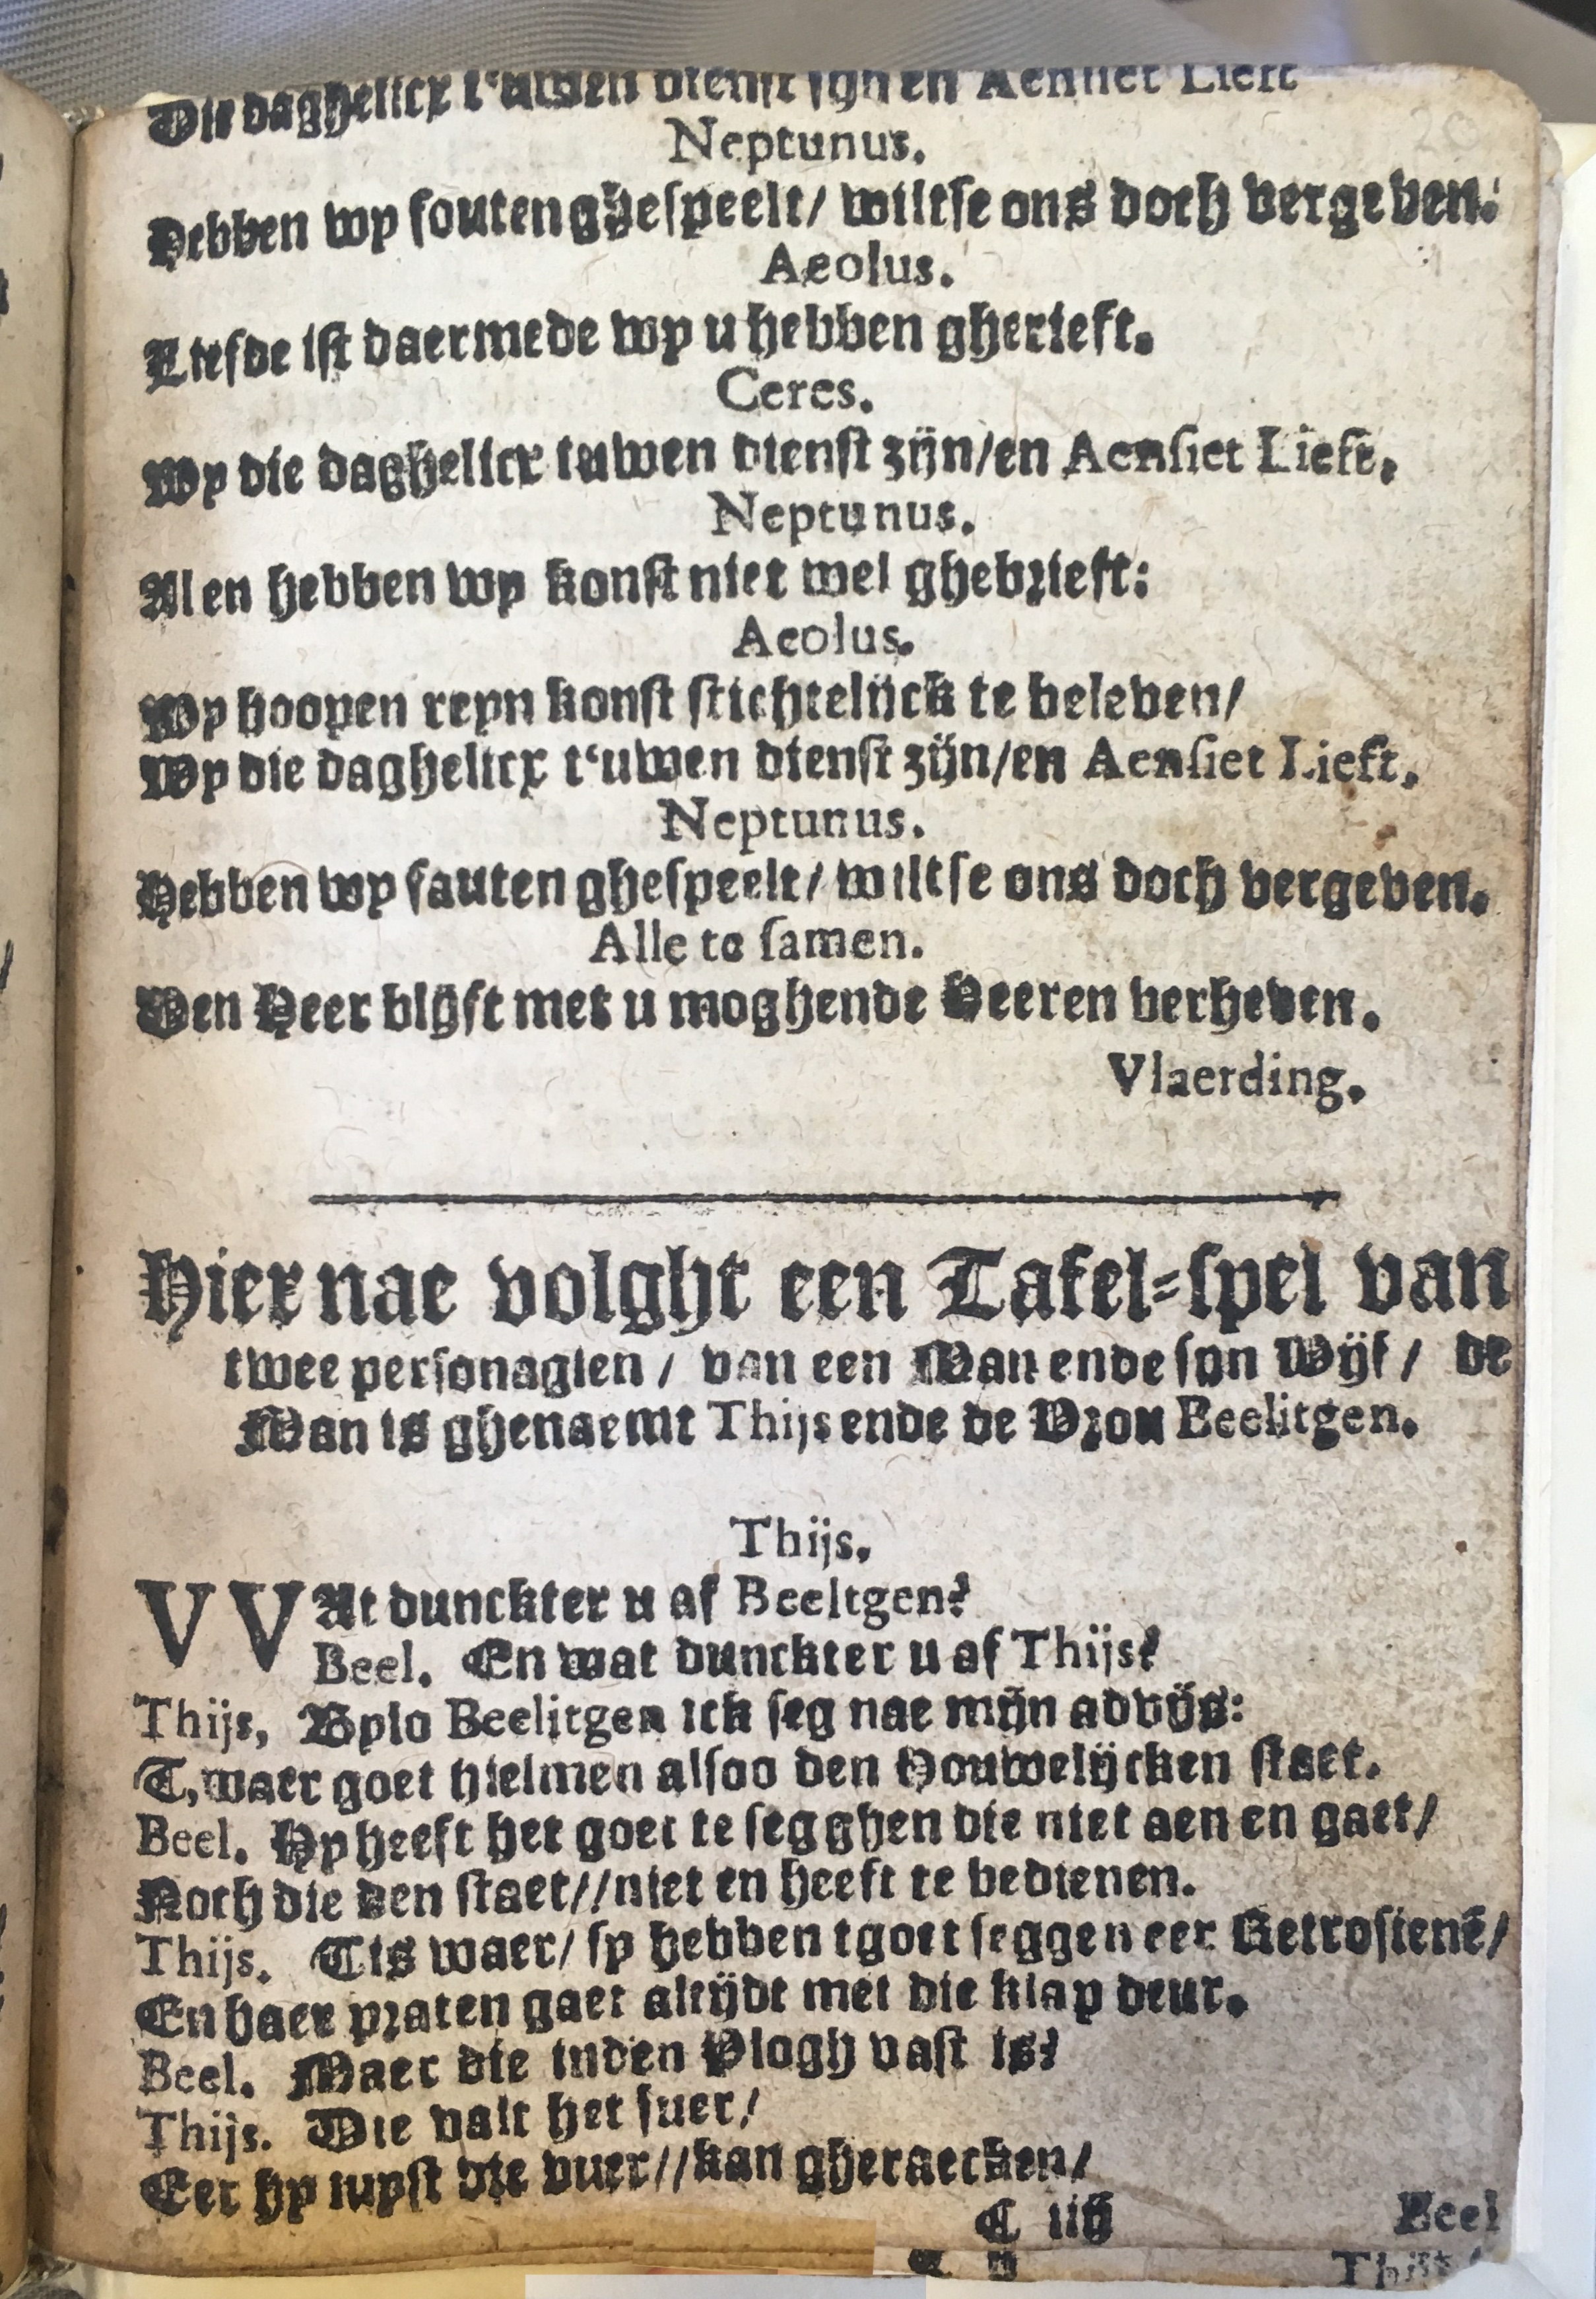 Die daghelicx t'uwen dienst sijn en Aensiet Lieft
Neptunus.
Hebben wy fouten ghespeelt/ wiltse ons doch vergeven:
Aeolus.
Liefde ist daermede wy u hebben gherieft.
Ceres.
Wy die daghelicx tuwen dienst zijn/en Aensiet Lieft.
Neptunus.
Al en hebben wy konst niet wel ghebrieft:
Aeolus.
Wy hoopen reyn konst stichtelijck te beleven/
Wy die daghelicx t'uwen dienst zijn/en Aensiet Lieft.
Neptunus.
Hebben wy fauten ghespeelt/ wiltse ons doch vergeven.
Alle te samen.
Den Heer blijft met u moghende Heeren verheven.
Vlaerding.
Hier nae volght een Tafel-spel van
twee personagien / van een Man ende syn Wijf / de
Man is ghenaemt Thijs ende de Vrou Beelitgen.
Thijs.
WAt dunckter u af Beeltgen?
Beel. En wat dunckter u af Thijs?
Thijs, Bylo Beelitgen ick seg nae mijn advijs:
T,waer goet hielmen alsoo den Houwelijcken staet.
Beel. Hy heeft het goet te segghen die niet aen en gaet/
Noch die den staet//niet en heeft te bedienen.
Thijs. Tis waer/ sy hebben tgoet seggen eer Getrosienē/
En haer praten gaet altijdt met die klap deur.
Beel. Maer die inden Plogh vast is?
Thijs. Die valt het suer/
Eer hy iuyst die vuer//kan gheraecken/
C iiij Beel
Thijs